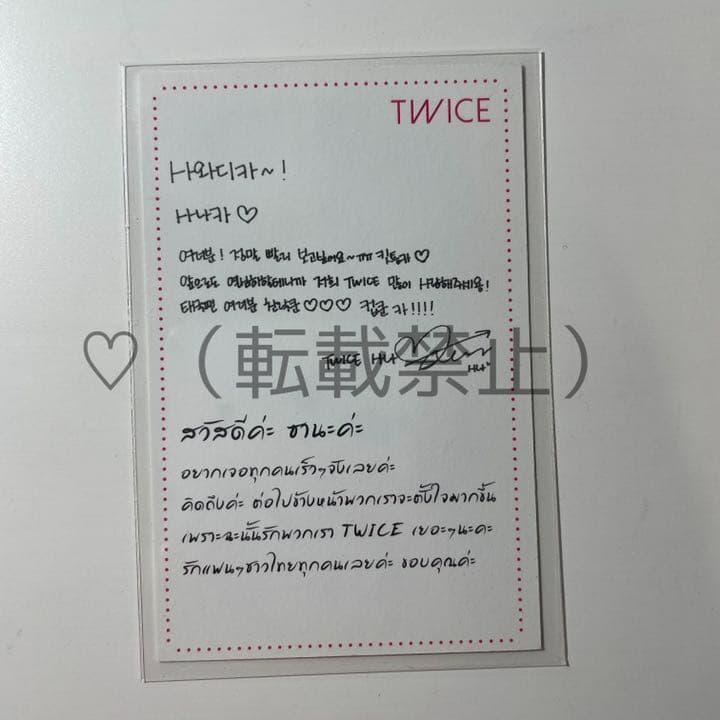 TWICE
사와디카~!
사나카♡
여러분! 정말 빨리 보고싶어요~ㅠㅠ 킷틍카♡
앞으로도 열심히할테니까 저희 TWICE 많이 사랑해주세용!
태국팬 여러분 찬락쿤♡♡♡ 컵쿤 카!!!!
♡(転載禁止)
TWICE 사나
สวัสดีค่ะ ซานะค่ะ
อยากเจอทุกคนเร็วๆจังเลยค่ะ
คิดถึงค่ะ ต่อไปข้างหน้าพวกเราจะตั้งใจมากขึ้น
เพราะฉะนั้นรักพวกเรา TWICE เยอะๆนะคะ
รักแฟนๆชาวไทยทุกคนเลยค่ะ ขอบคุณค่ะ